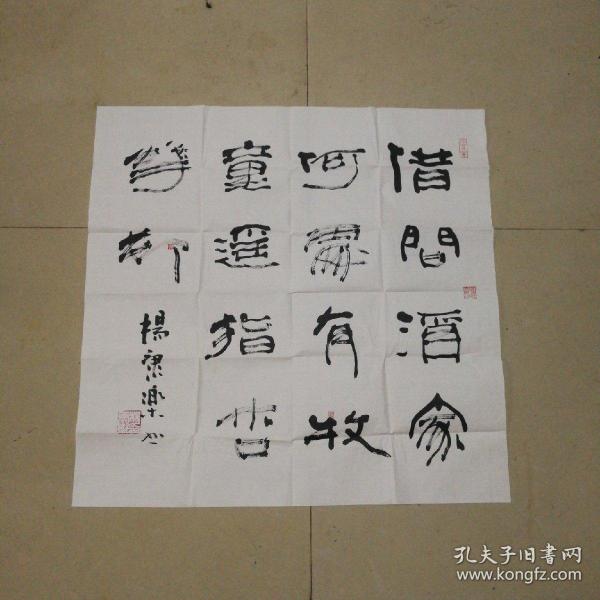 借問酒家
何處有牧
童遥指杏
華邨
楊
孔夫子旧書网
www.kongfz.com